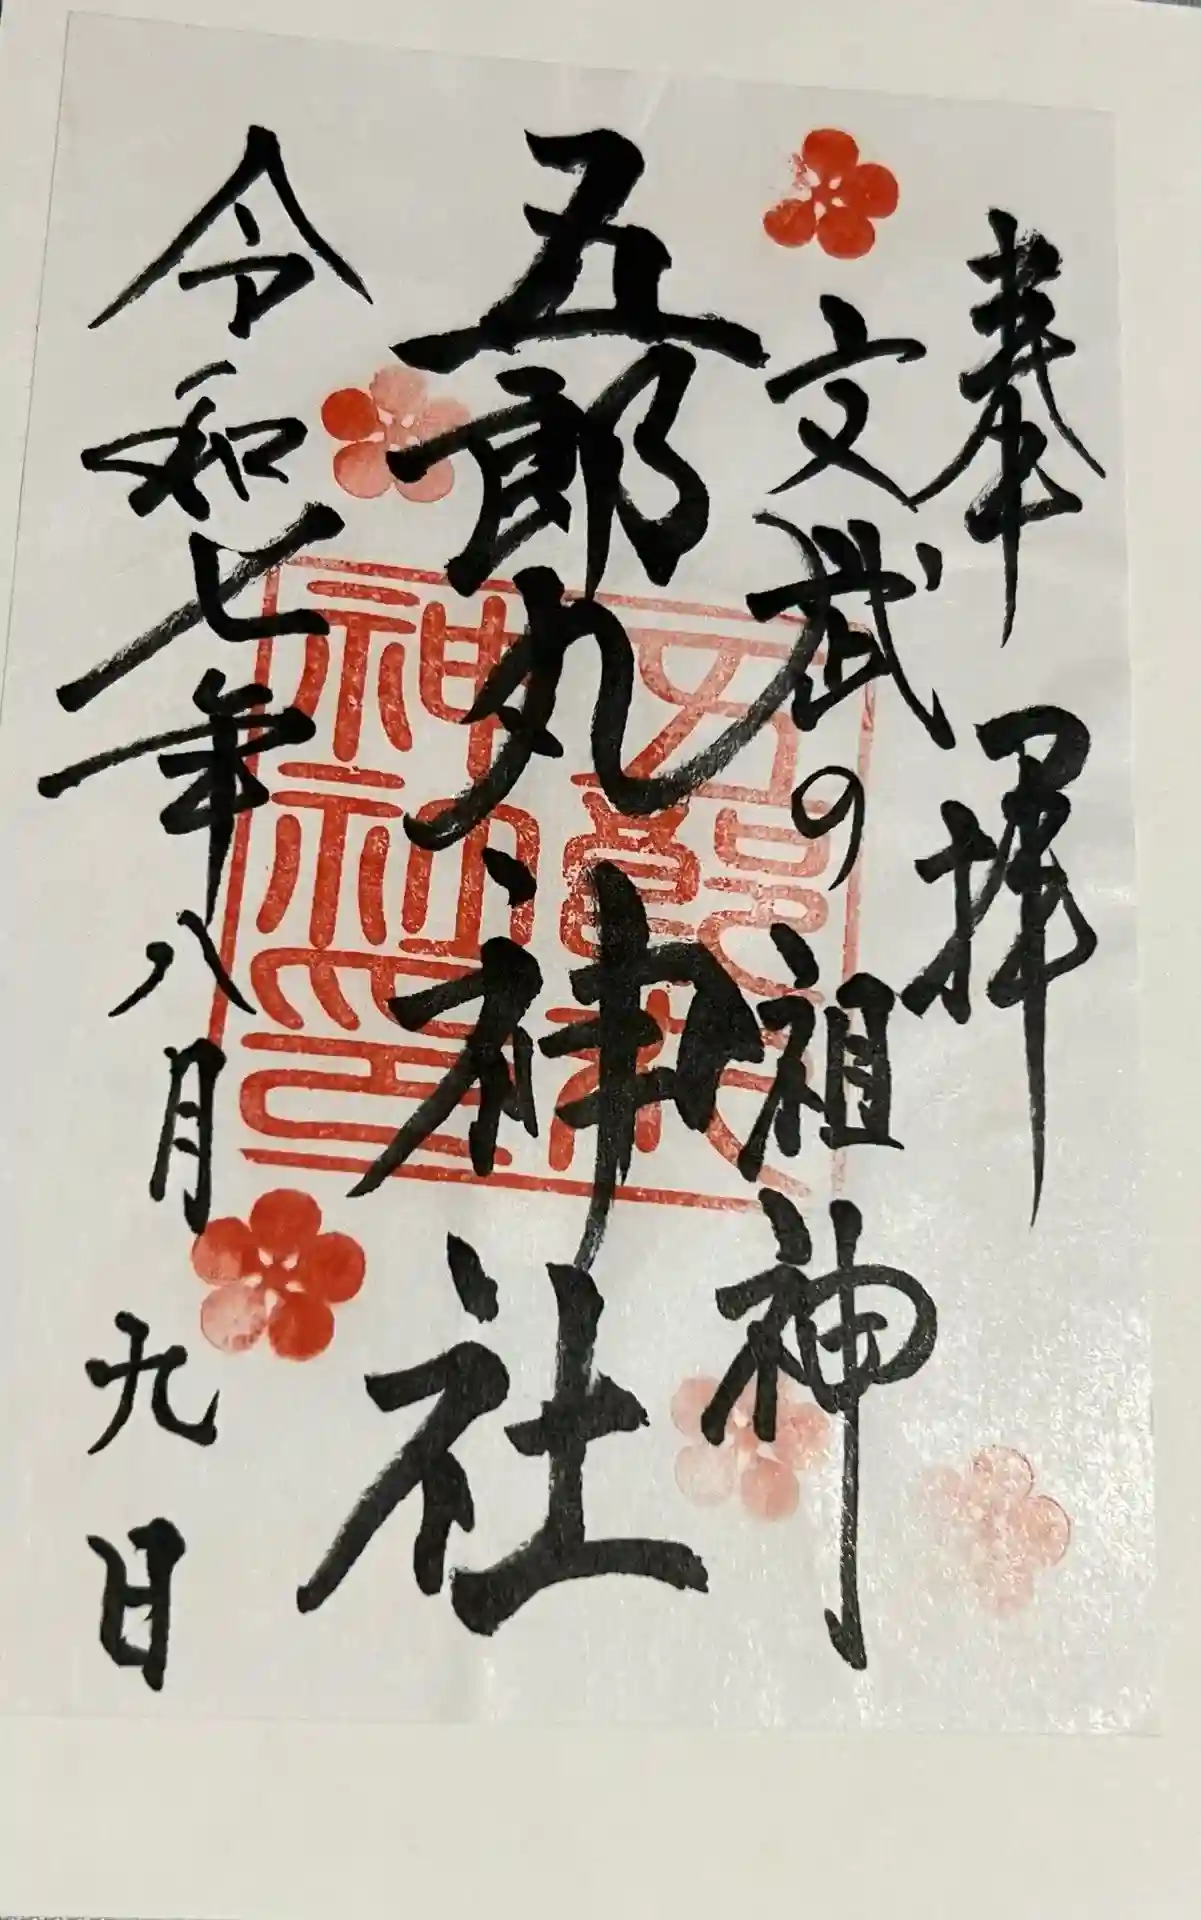 奉拝
文武の祖神
五郎丸神社
令和七年八月九日
五郎丸
神社印